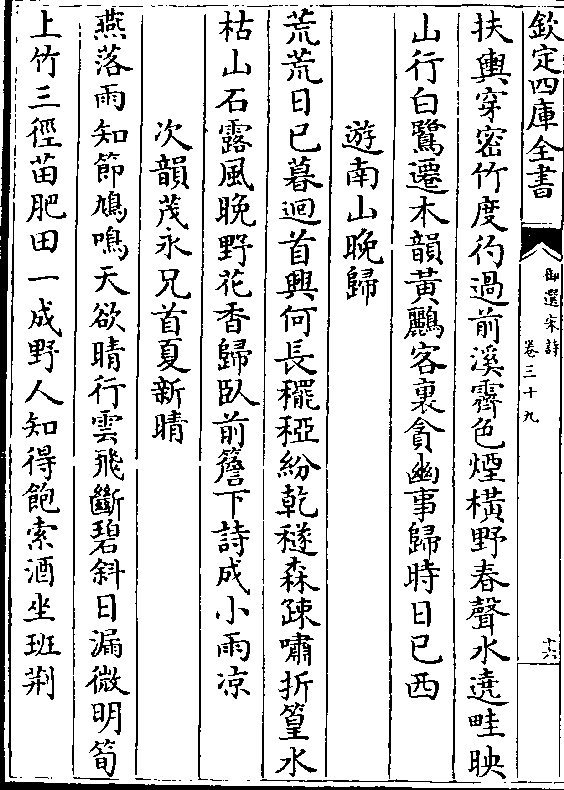 欽定四庫全書
御選宋詩
卷三十九
十六
扶輿穿密竹度彴過前溪霽色煙橫野春聲水遶畦映
山行白鷺遷木韻黃鸝客裏貪幽事歸時日已西
遊南山晚歸
荒荒日已暮迴首興何長䆉稏紛乾穟森疎嘯折篁水
枯山石露風晚野花香歸臥前簷下詩成小雨凉
次韻茂永兄首夏新晴
燕落雨知節鳩鳴天欲晴行雲飛斷碧斜日漏微明筍
上竹三徑苗肥田一成野人知得飽索酒坐班荆